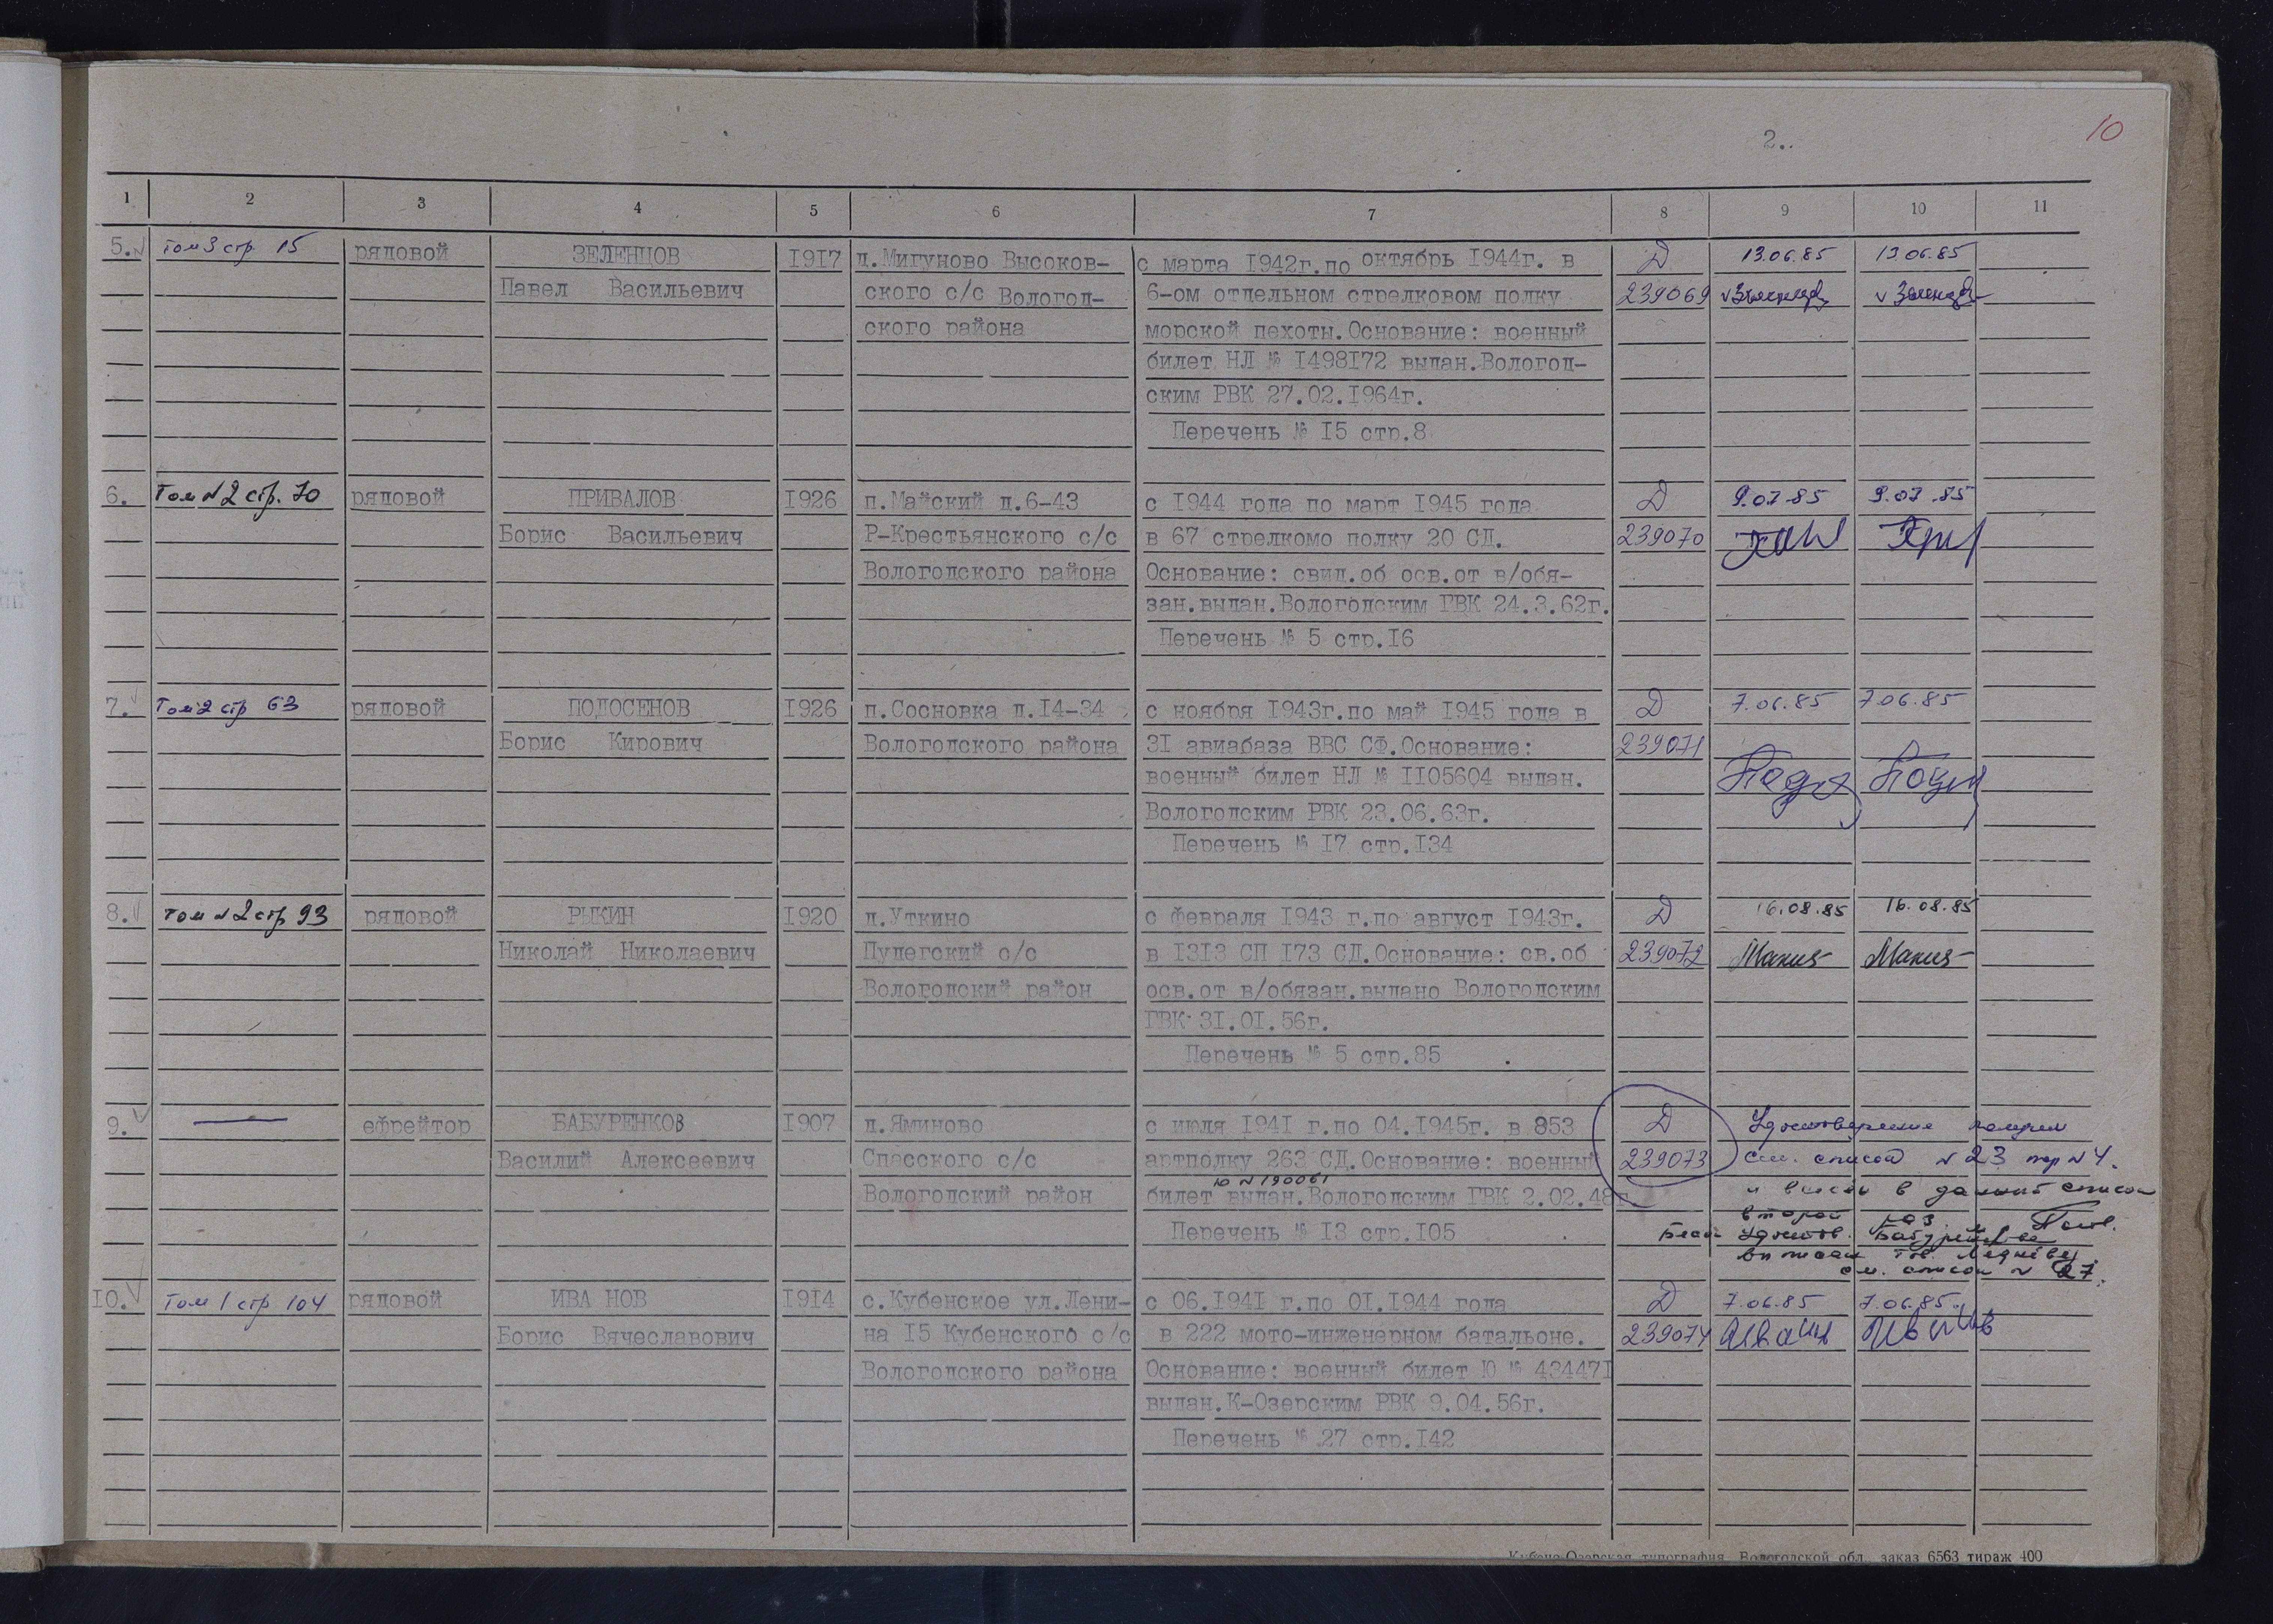 10
2..
1 2 3 4 5 6 7 8 9 10 11
5. Том 3 стр. 15 рядовой ЗЕЛЕНЦОВ 1917 д.Мигуново Высоков- с марта 1942г.по октябрь 1944г. в Д 13.06.85 13.06.85
Павел Васильевич ского с/с Вологод- 6-ом отдельном стрелковом полку 239069
ского района морской пехоты.Основание: военный
билет НЛ № 1498172 выдан.Вологод-
ским РВК 27.02.1964г.
Перечень № 15 стр.8
6. Том №2 стр. 70 рядовой ПРИВАЛОВ 1926 п.Майский д.6-43 с 1944 года по март 1945 года Д 9.07.85 9.07.85
Борис Васильевич Р-Крестьянского с/с в 67 стрелкомо полку 20 СД. 239070
Вологодского района Основание: свид.об осв.от в/обя-
зан.выдан.Вологодским ГВК 24.3.62г.
Перечень № 5 стр.16
7. Том 2 стр 63 рядовой ПОДОСЕНОВ 1926 п.Сосновка д.14-34 с ноября 1943г.по май 1945 года в Д 7.06.85 7.06.85
Борис Кирович Вологодского района 31 авиабаза ВВС СФ.Основание: 239071
военный билет НЛ № 1105604 выдан.
Вологодским РВК 23.06.63г.
Перечень № 17 стр.134
8. Том №2 стр 93 рядовой РЫКИН 1920 д.Уткино с февраля 1943 г.по август 1943г. Д 16.08.85 16.08.85
Николай Николаевич Пудегский с/с в 1313 СП 173 СД.Основание: св.об 239072
Вологодский район осв.от в/обязан.выдано Вологодским
ГВК 31.01.56г.
Перечень № 5 стр.85
9. ефрейтор БАБУРЕНКОВ 1907 д.Яминово с июля 1941 г.по 04.1945г. в 853 Д Удостоверение получил
Василий Алексеевич Спасского с/с артполку 263 СД.Основание: военный 239073 см. список №23 пор №4.
Ю №190061
Вологодский район билет выдан.Вологодским ГВК 2.02.48г. и в данный список
второй раз
Перечень № 13 стр.105 Удостов.
см. список № 27.
10. Том 1 стр 104 рядовой ИВА НОВ 1914 с.Кубенское ул.Лени- с 06.1941 г.по 01.1944 года Д 7.06.85 7.06.85.
Борис Вячеславович на 15 Кубенского с/с в 222 мото-инженерном батальоне. 239074 Иванов Иванов
Вологодского района Основание: военный билет Ю № 434471
выдан.К-Озерским РВК 9.04.56г.
Перечень № 27 стр.142
Кубено-Озерская типография Вологодской обл. заказ 6563 тираж 400